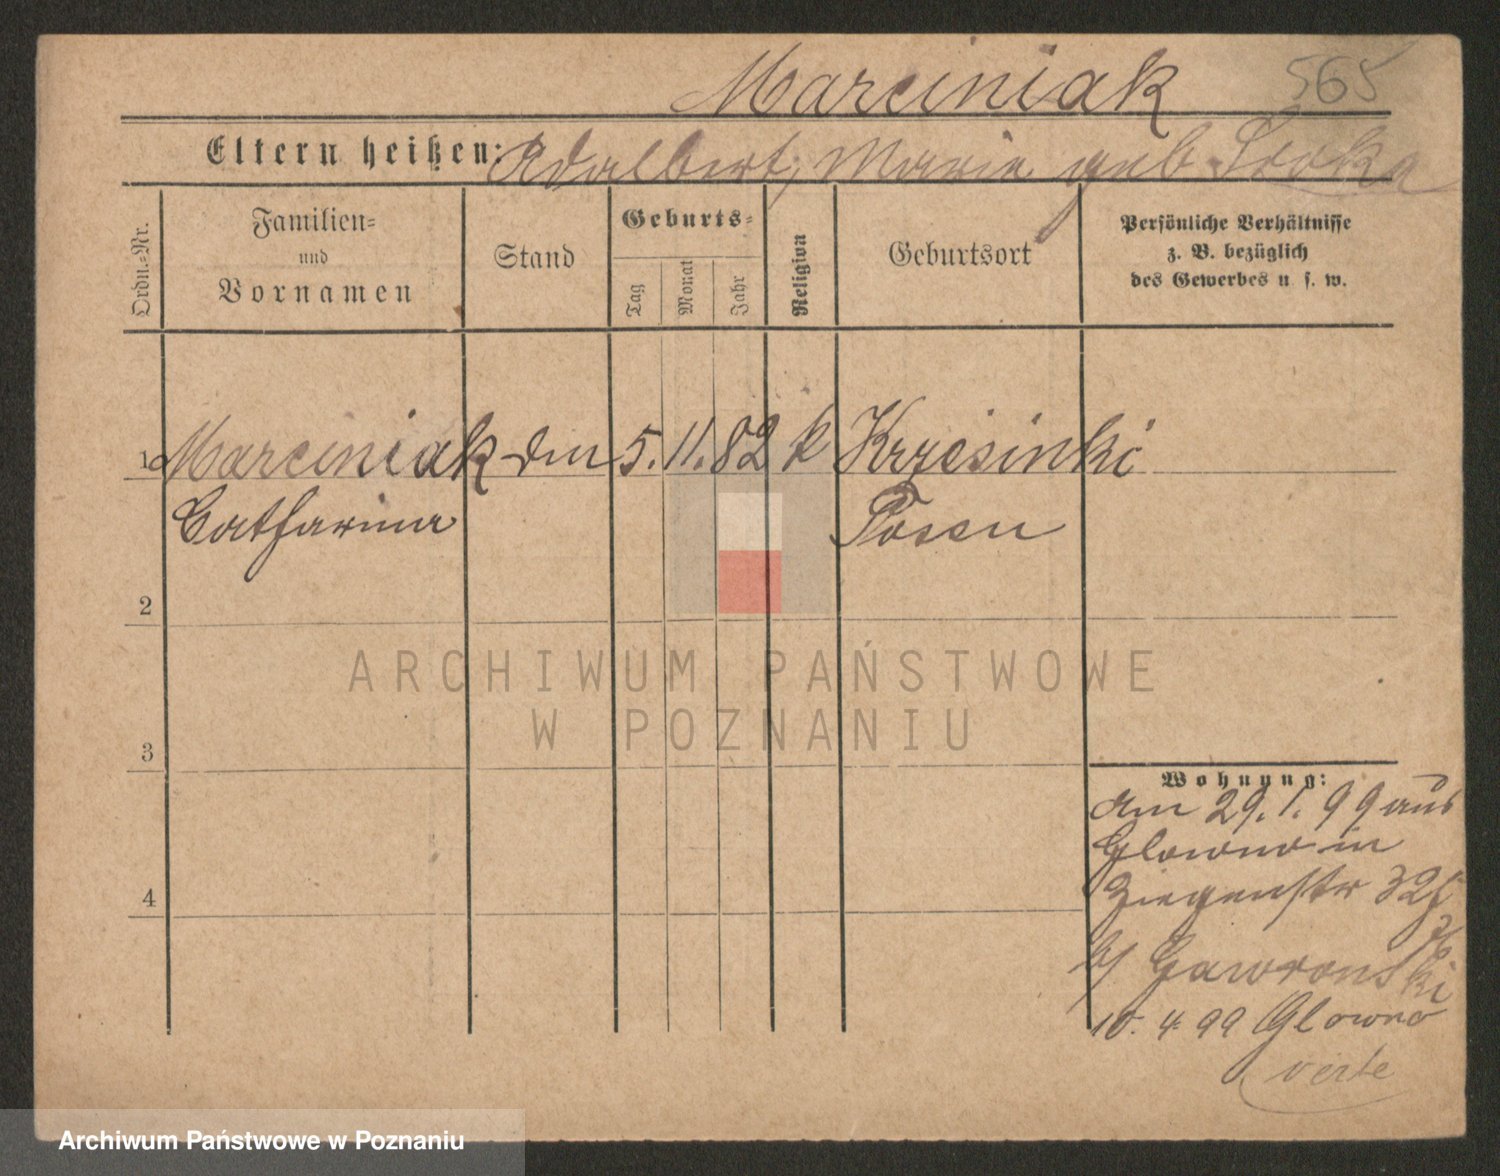 Marciniak 565
Eltern heißen: Adalbert, Marie geb Sroka
Ordn.=Nr.
Familien=
und
Vornamen
Stand
Geburts=
Tag
Monat
Jahr
Religion
Geburtsort
Persönliche Verhältnisse
z. B. bezüglich
des Gewerbes u. s. w.
1 Marciniak 5. 11. 82 k Krzesinki
Catharina Posen
2
3
4
Wohnung:
am 29. 1. 99 aus
Glowno in
Ziegenstr 32
b/ Gawronski
10. 4. 99 Glowno
verte
ARCHIWUM PAŃSTWOWE
W POZNANIU
Archiwum Państwowe w Poznaniu